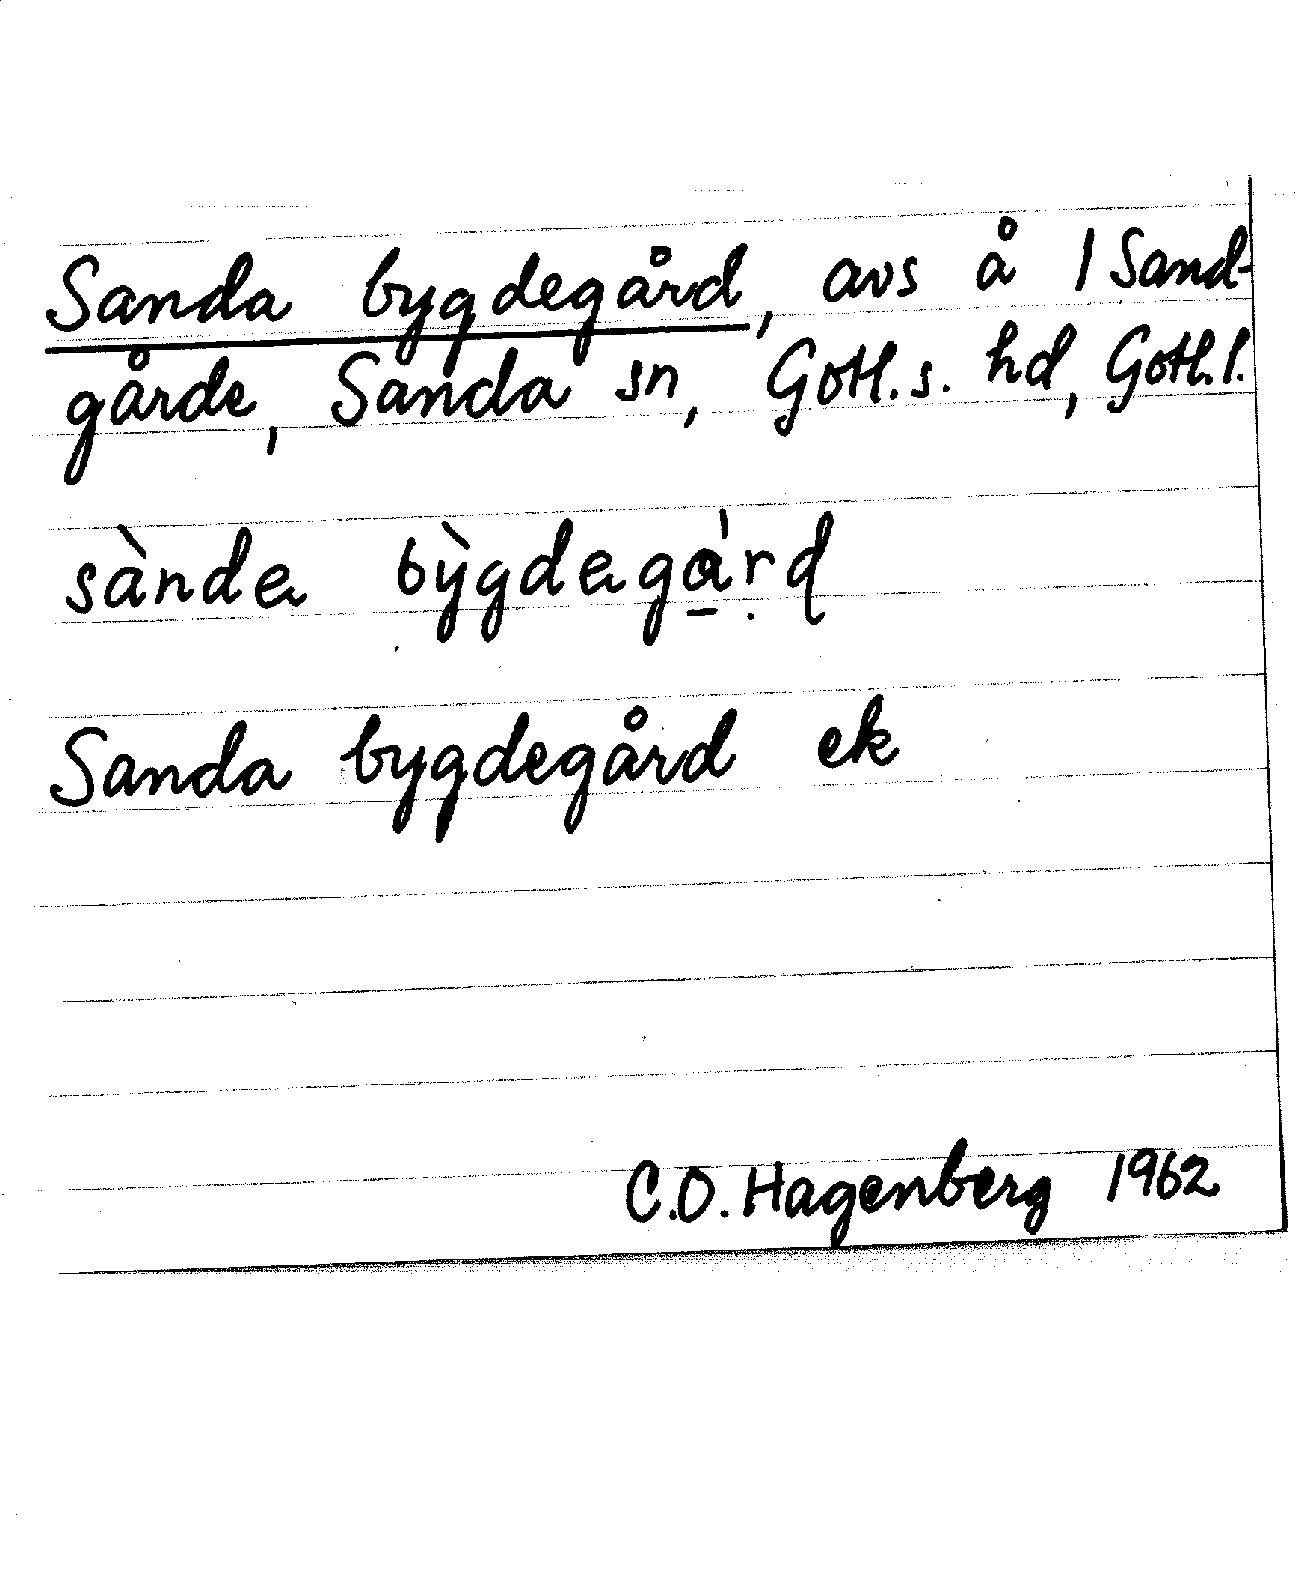 Sanda bygdegård, avs å 1 Sand-
gårde, Sanda sn, Gotl. s. hd, Gotl. l.
sàndɐ bỳgdɐgɑ̠̀rd
Sanda bygdegård ek
C.O. Hagenberg 1962